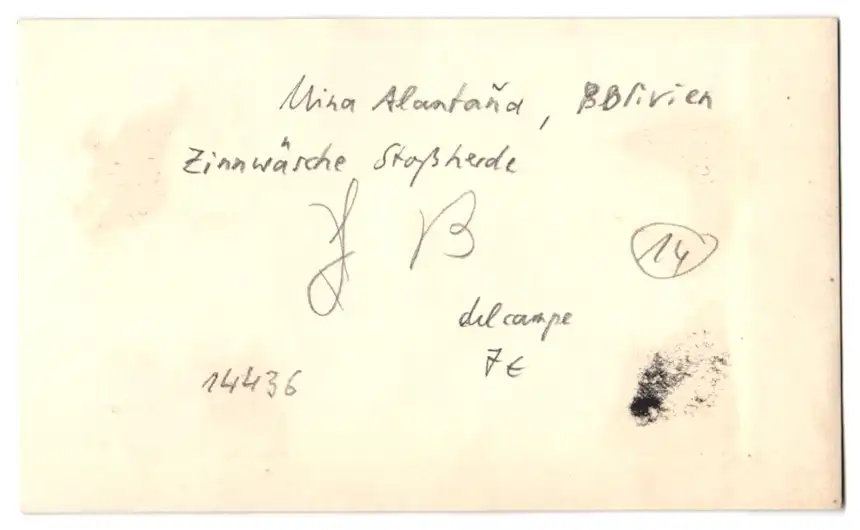 Mina Alantaña, BBlivien
Zinnwäsche Stoßherde
J B
14
delcampe
7 €
14436